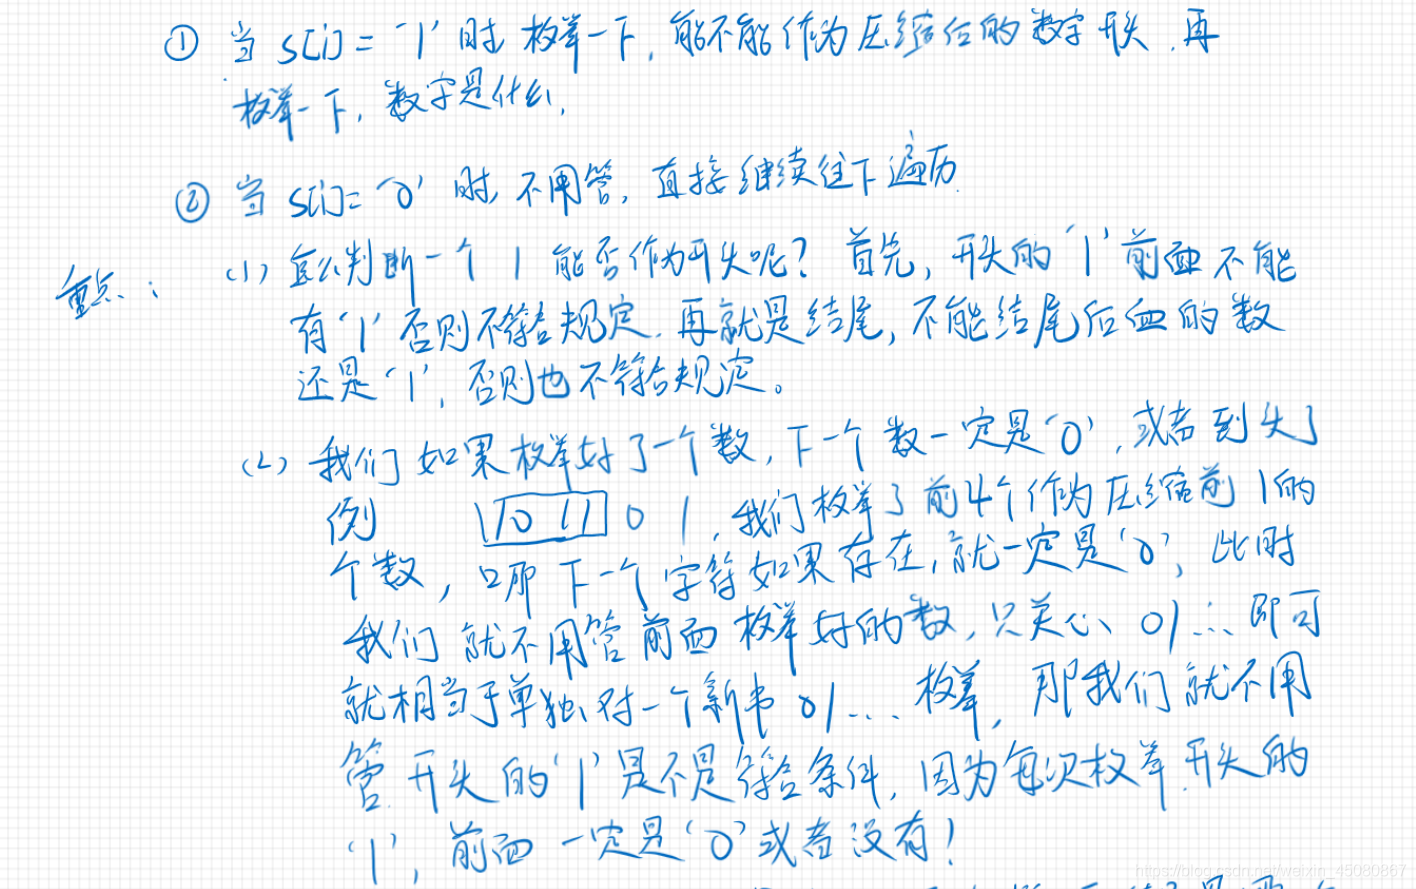 ① 当 s[i]= '1' 时 枚举一下, 能不能作为压缩后的数字开头, 再
枚举一下, 数字是什么,
② 当 s[i]= '0' 时, 不用管, 直接继续往下遍历.
重点: (1) 怎么判断一个 1 能否作为开头呢? 首先, 开头的 '1' 前面不能
有 '1' 否则不符合规定. 再就是结尾, 不能结尾后面的数
还是 '1', 否则也不符合规定。
(2) 我们如果枚举好了一个数, 下一个数一定是 '0', 或者到头了
例 1011 0 1, 我们枚举了前4个作为压缩前1的
个数, 那下一个字符如果存在, 就一定是 '0', 此时
我们就不用管前面枚举好的数, 只关心 01... 即可
就相当于单独对一个新串 01... 枚举, 那我们就不用
管开头的 '1' 是不是符合条件, 因为每次枚举开头的
'1', 前面一定是 '0' 或者没有!
https://blog.csdn.net/weixin_45080867